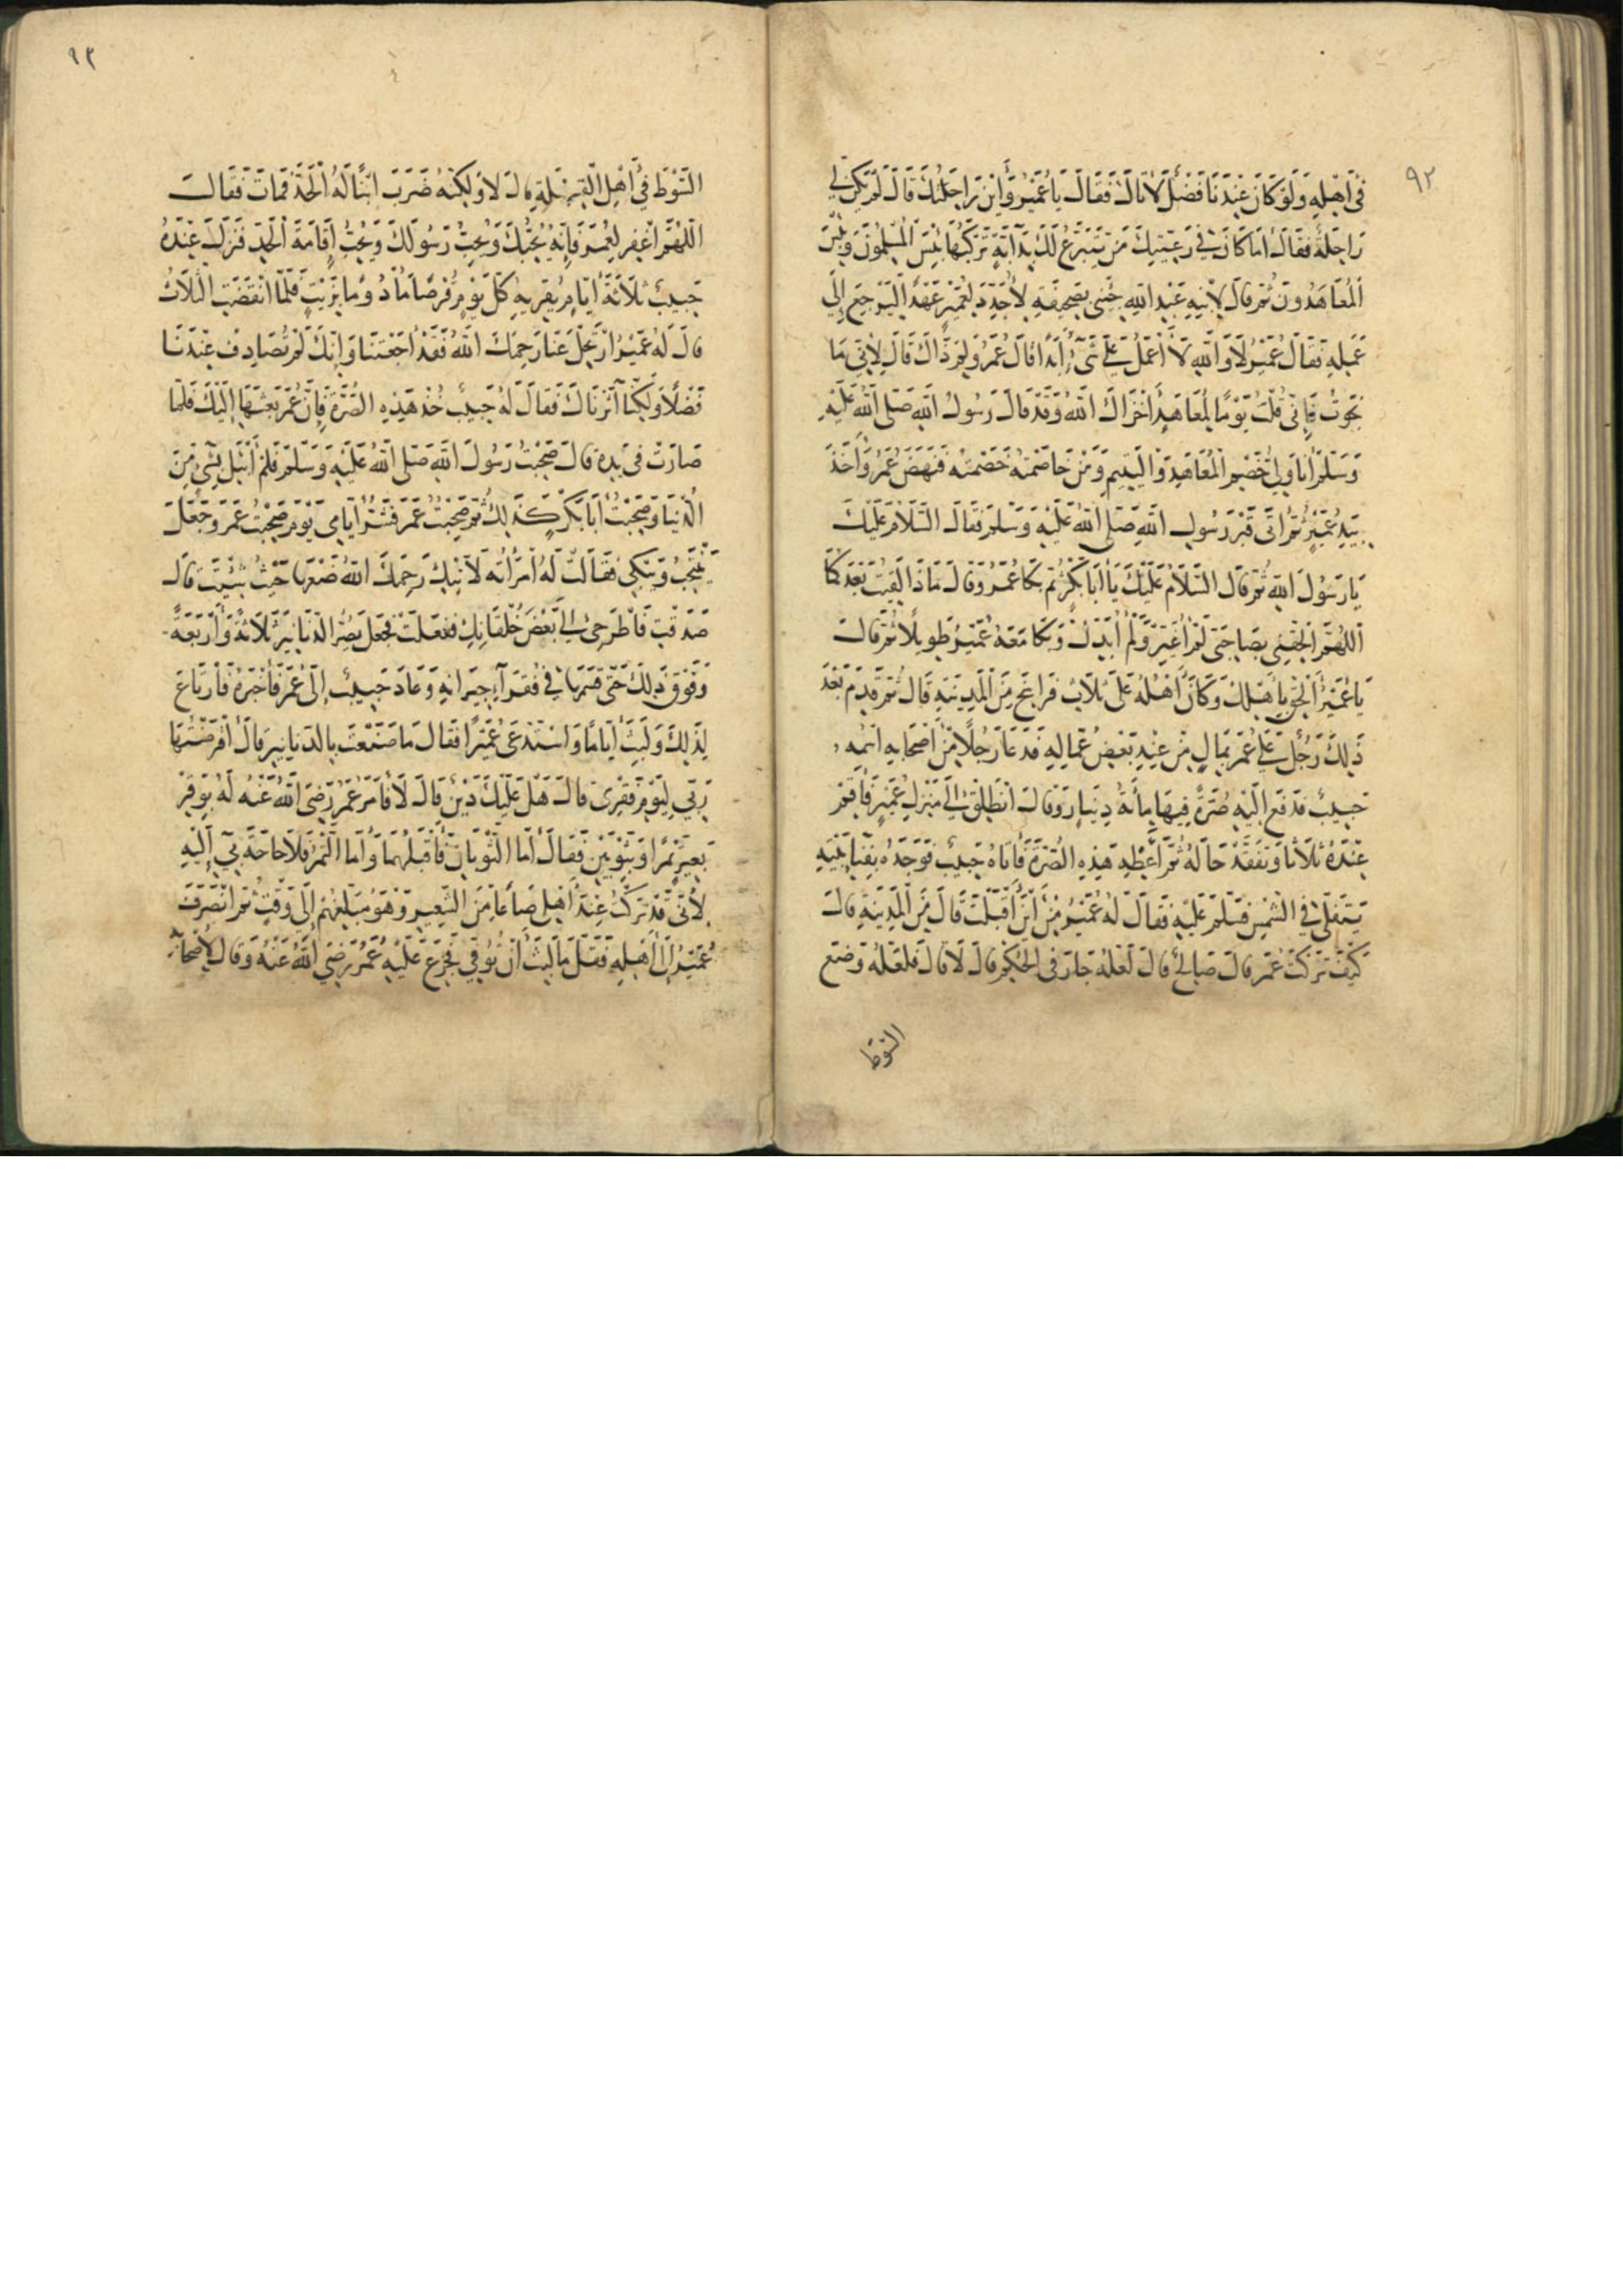 ٩٢
فى اهله ولو كان عندنا فضل لاتاك فقال يا عمير واين راحلتك قال لم تكن لى
راحلة فقال اما كان فى رعيتك من يتبرع لك بدآبة تركبها بئس المسلمون وبئس
المعاهدون ثم قال لابنه عبد الله جئنى بصحيفة لأجدد لعمير عهدا ليرجع إلى
عمله فقال عمير لا والله لا أعمل على شىء أبدا قال عمر ولم ذاك قال لأنى ما
نجوت فإنى قلت يوما لمعاهد أخزاك الله وقد قال رسول الله صلى الله عليه
وسلم أنا ولى خصم المعاهد واليتيم ومن خاصمته خصمته فنهض عمر وأخذ
بيد عمير ثم أتى قبر رسول الله صلى الله عليه وسلم فقال السلام عليك
يا رسول الله ثم قال السلام عليك يا أبا بكر ثم بكا عمر وقال ماذا لقيت بعدكما
اللهم الحقنى بصاحبى لم أغير ولم أبدل وبكا معه عمير طويلا ثم قال
يا عمير الحق بأهلك وكان أهله على ثلاث فراسخ من المدينة قال ثم قدم بعد
ذلك رجل على عمر بمال من عند بعض عماله فدعا رجلا من أصحابه اسمه
حبيب فدفع إليه صرة فيها مأية دينار وقال انطلق إلى منزل عمير فأقم
عنده ثلاثا وتفقد حاله ثم أعطه هذه الصرة فأتاه حبيب فوجده بفنا بيته
يتفلى فى الشمس فسلم عليه فقال له عمير من أين أقبلت قال من المدينة قال
كيف تركت عمر قال صالح قال لعله جار فى الحكم قال لا قال فلعله وضع
السوط
٩٣
السوط فى أهل القبلة قال لا ولكنه ضرب ابنا له الحد فمات فقال
اللهم اغفر لعمر فإنه يحبك ويحب رسولك ويحب إقامة الحد فنزل عنده
حبيب ثلاثة أيام يقريه كل يوم قرصا مأدوما بزيت فلما انقضت الثلاث
قال له عمير ارتحل عنا رحمك الله فقد أجعتنا وإنك لم تصادف عندنا
فضلا ولكنا آثرناك فقال له حبيب خذ هذه الصرة فإن عمر بعثها إليك فلما
صارت فى يده قال صحبت رسول الله صلى الله عليه وسلم فلم أبتل بشىء من
الدنيا وصحبت أبا بكر كذلك ثم صحبت عمر فشر أيامى يوم صحبت عمر وجعل
ينتحب ويبكى فقالت له امرأته لا تبك رحمك الله ضعها حيث شئت قال
صدقت فاطرحى إلى بعض خلقانك ففعلت فجعل يصر الدنانير ثلاثة وأربعة
وفوق ذلك حتى قسمها فى فقرآء جيرانه وعاد حبيب إلى عمر فأخبره فارتاع
لذلك ولبث أياما واستدعى عميرا فقال ما صنعت بالدنانير قال أقرضتها
ربى ليوم فقرى قال هل عليك دين قال لا فأمر عمر رضى الله عنه له بوقر
بعير تمرا وبثوبين فقال أما الثوبان فأقبلهما وأما التمر فلا حاجة بى إليه
لأنى قد تركت عند أهلى صاعا من الشعير وهو مبلغهم إلى وقت ثم انصرف
عمير إلى أهله فقل ما لبث أن توفى فجزع عليه عمر رضى الله عنه وقال لأصحابه